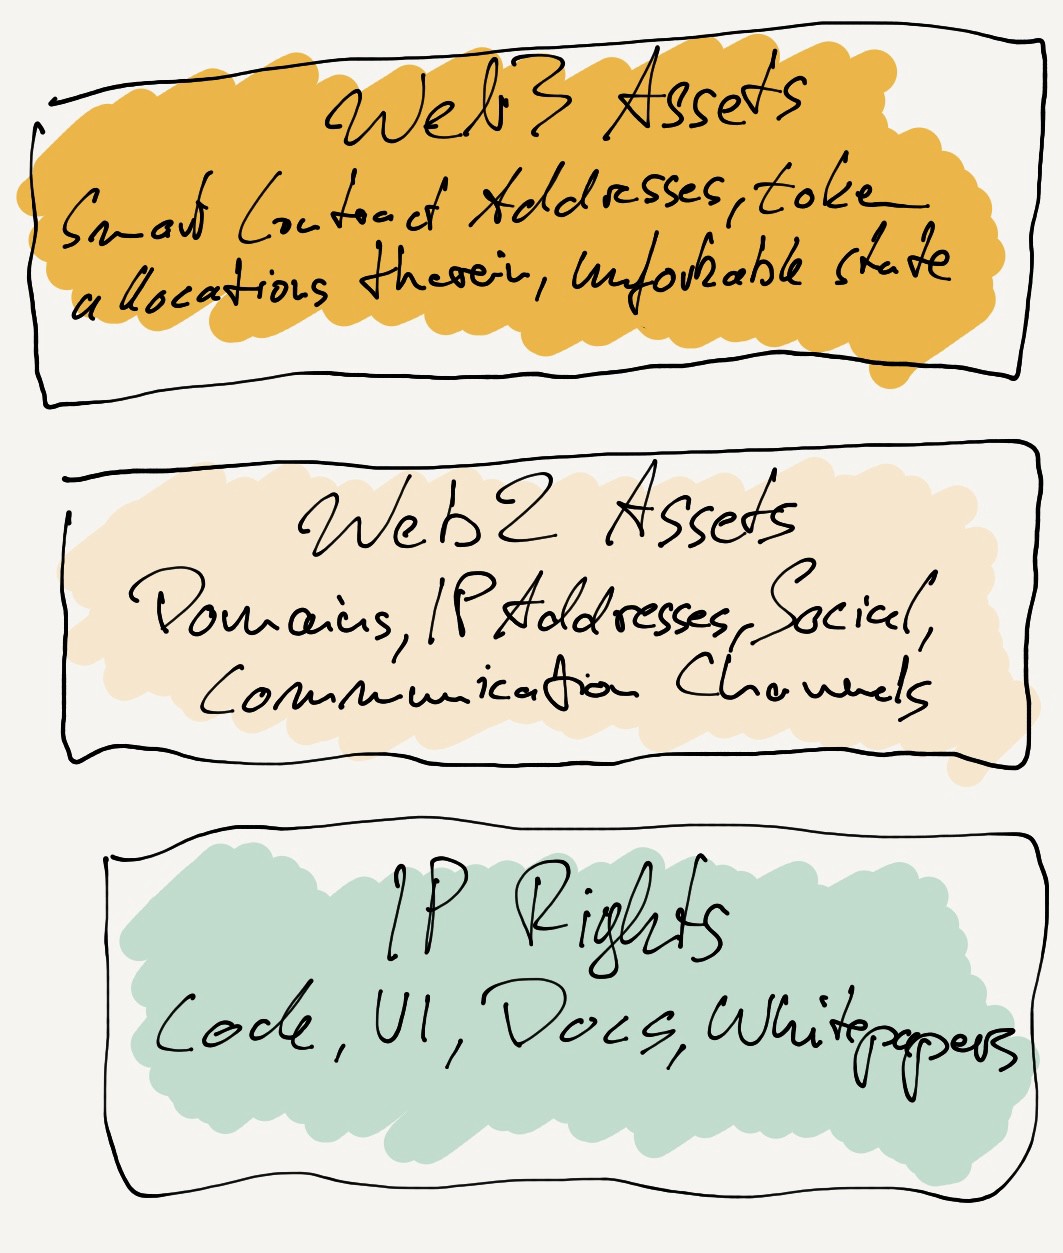 Web3 Assets
Smart Contract Addresses, token
allocations therein, unforkable state
Web2 Assets
Domains, IP Addresses, Social,
Communication Channels
IP Rights
Code, UI, Docs, Whitepapers